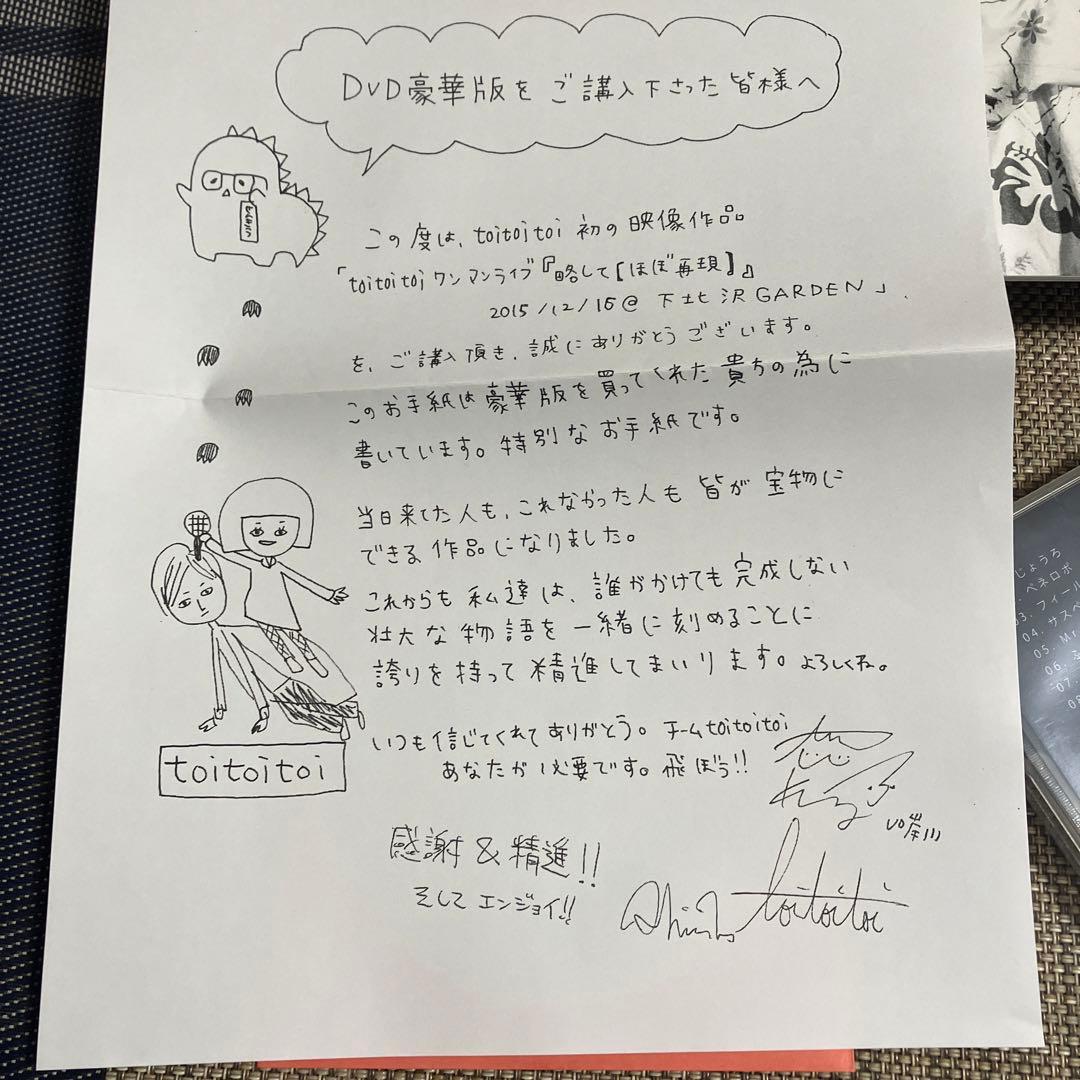 DVD豪華版をご講入下さった皆様へ
この度は、toitoitoi 初の映像作品
「toitoitoiワンマンライブ『略して【ほぼ再現】』
2015/12/16@下北沢GARDEN」
を、ご講入頂き、誠にありがとうございます。
このお手紙は豪華版を買ってくれた貴方の為に
書いています。特別なお手紙です。
当日来てた人も、これなかった人も皆が宝物に
できる作品になりました。
これからも私達は、誰がかけても完成しない
壮大な物語を一緒に刻めることに
誇りを持って精進してまいります。よろしくね。
いつも信じてくれてありがとう。チームtoitoitoi
あなたが必要です。飛ぼう!!
toitoitoi
Vo岸川
感謝&精進!!
そしてエンジョイ!!
toitoitoi
じょうろ
ペネロポ
03. フィール
04. サスペ
05. Mr
06.
07.
08